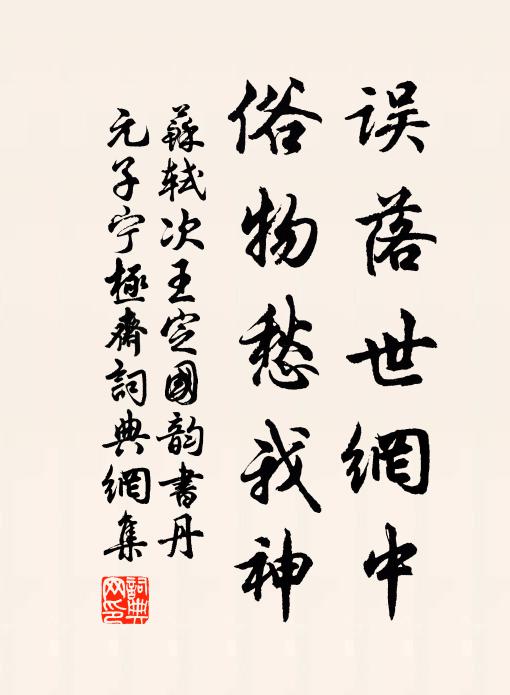 误落世網中
俗物愁我神
蘇軾次王定國韵書丹
元子宁極齋詞典網集
詞典网印